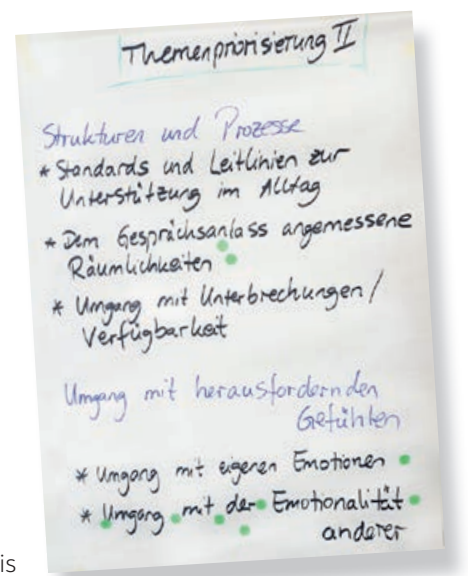 Themenpriorisierung II
Strukturen und Prozesse
* Standards und Leitlinien zur
Unterstützung im Alltag
* Dem Gesprächsanlass angemessene
Räumlichkeiten
* Umgang mit Unterbrechungen/
Verfügbarkeit
Umgang mit herausfordernden
Gefühlen
* Umgang mit eigenen Emotionen
* Umgang mit der Emotionalität
anderer
is